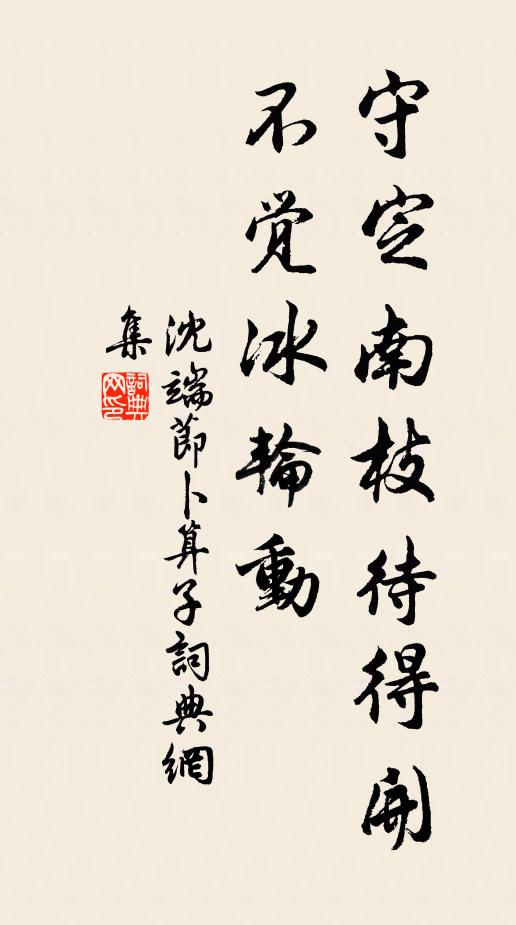 守定南枝待得開
不覺冰輪動
沈端節卜算子詞典網
集
詞典
网印